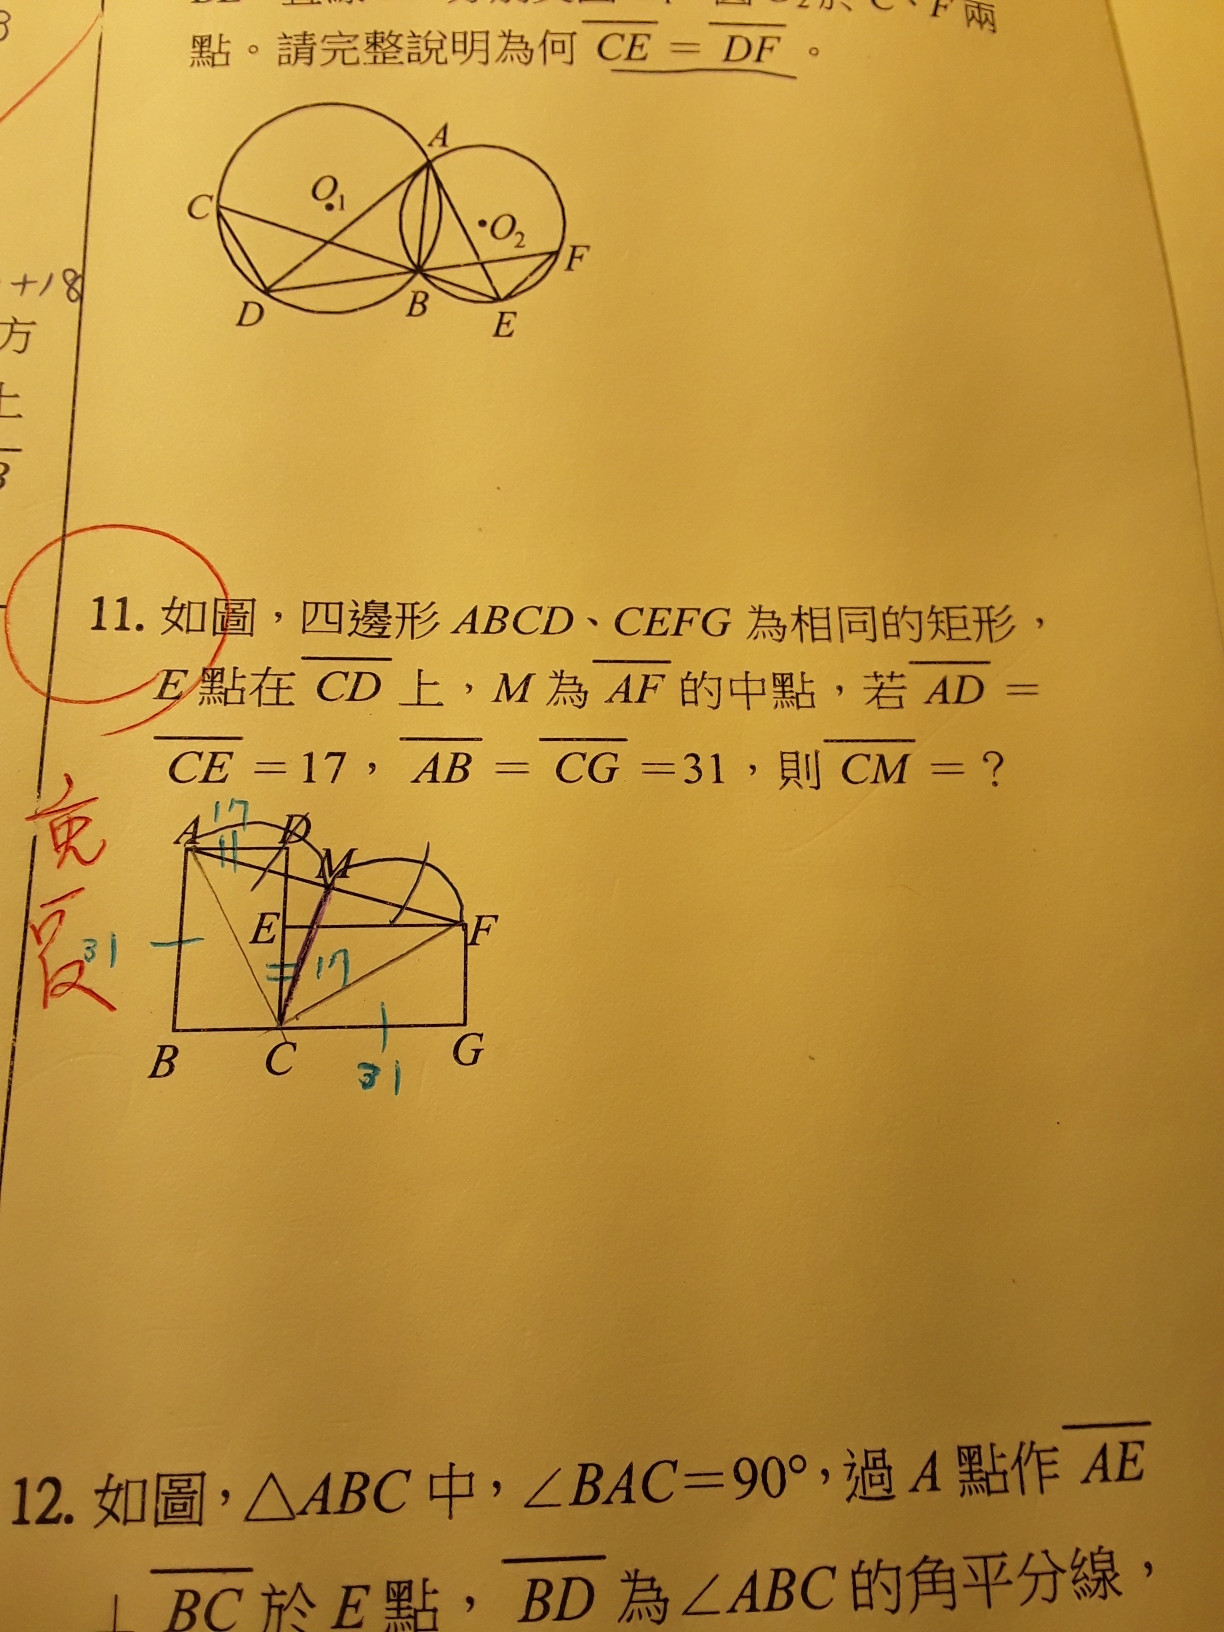 點。請完整說明為何 CE = DF 。
A
C
O1
O2
F
D
B
E
+18
方
上
11. 如圖，四邊形 ABCD、CEFG 為相同的矩形，
E 點在 CD 上，M 為 AF 的中點，若 AD =
CE = 17，AB = CG = 31，則 CM = ？
17
A
D
M
E
F
31
17
B
C
G
31
12. 如圖，△ABC 中，∠BAC=90°，過 A 點作 AE
⊥ BC 於 E 點，BD 為∠ABC 的角平分線，